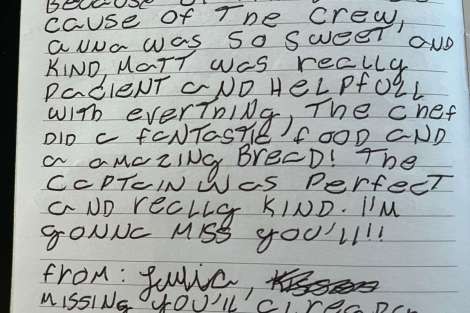 Because of
cause of The crew,
anna was so sweet and
kind, Matt was really
pacient and Helpfull
with everThing, The chef
did a fantastic food and
a amazing Bread! The
captain was perfect
and really kind. I'm
gonna miss you'll!!
from: Julia,
missing you'll already